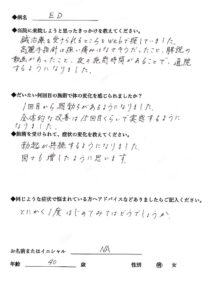 ◆病名 ED
◆当院に来院しようと思ったきっかけを教えてください。
鍼治療を受けられるところをwebで探していました。
高麗手指鍼は強い痛みはなさそうだったこと、解説の
動画があったこと、夜の施術時間があることで、通院
するようになりました。
◆だいたい何回目の施術で体の変化を感じられましたか?
1回目から
全体的な改善は 回目くらいで実感するように
なりました。
◆施術を受けられて、症状の変化を教えてください。
勃起が持続するようになりました。
回数も増したように思います。
◆同じような症状で悩まれている方へアドバイスなどありましたらご記入ください。
とにかく1度はじめてみてはどうでしょうか。
お名前またはイニシャル NA
年齢 40 歳 性別 男 女